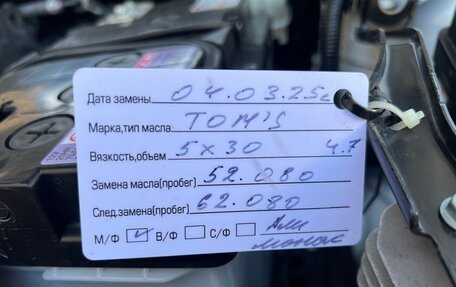 Дата замены 04.03.25г
Марка,тип масла TOM'S
Вязкость,объем 5x30 4.7
Замена масла(пробег) 52.080
След.замена(пробег) 62.080
М/Ф В/Ф С/Ф